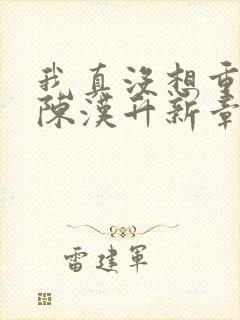 我真沒想重
陳漢升新章
雷建軍